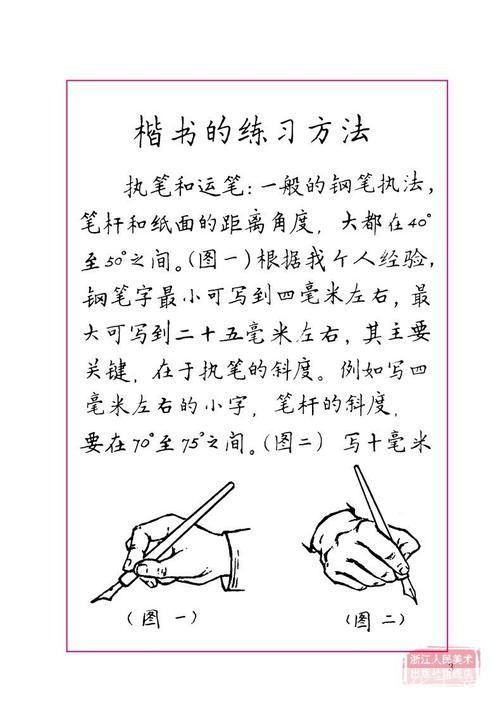 楷书的练习方法
执笔和运笔：一般的钢笔执法，
笔杆和纸面的距离角度，大都在40°
至50°之间。(图一)根据我个人经验，
钢笔字最小可写到四毫米左右，最
大可写到二十五毫米左右，其主要
关键，在于执笔的斜度。例如写四
毫米左右的小字，笔杆的斜度，
要在70°至75°之间。(图二) 写十毫米
(图 一)
(图 二)
浙江人民美术
出版社旗舰店
3